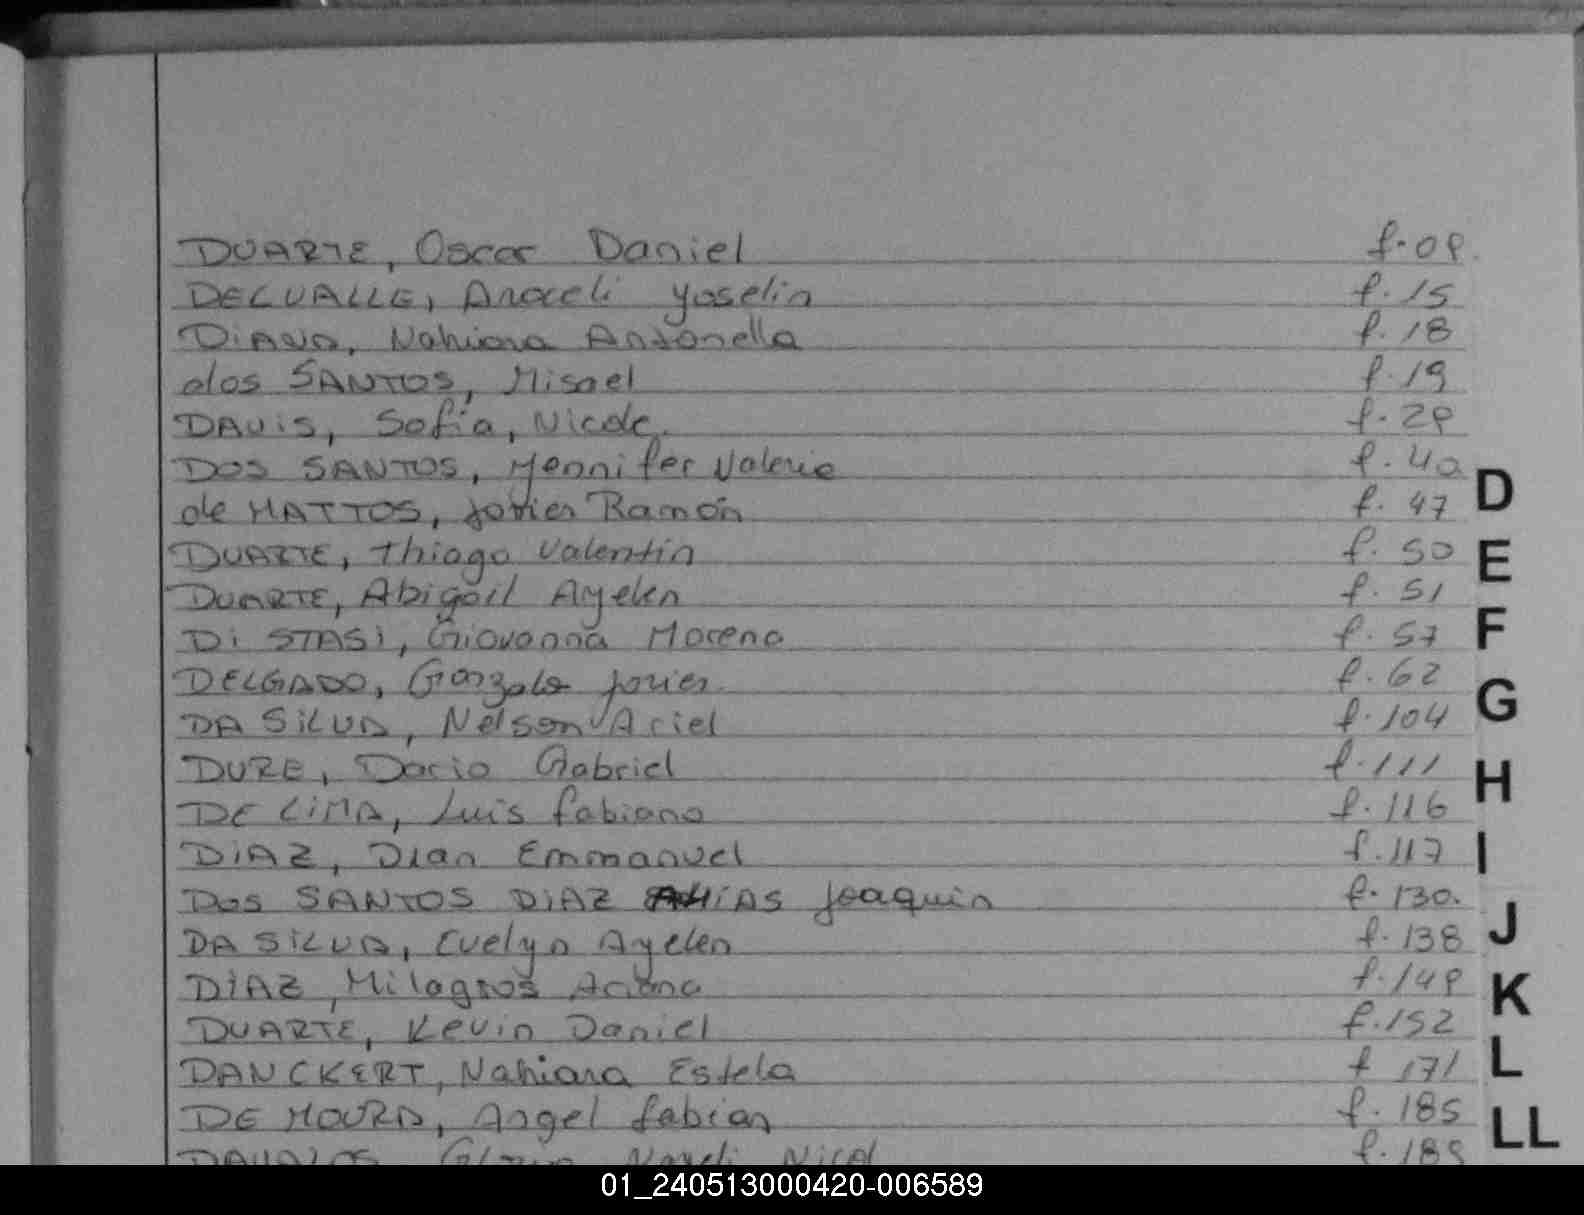 DUARTE, Oscar Daniel f. 09.
DELVALLE, Araceli Yoselin f. 15
DiANA, Nahiara Antonella f. 18
dos SANTOS, Misael f. 19
DAVIS, Sofía, Nicole. f. 29
DOS SANTOS, Yennifer Valeria f. 40
de MATTOS, Javier Ramón f. 47
DUARTE, Thiago Valentin f. 50
DUARTE, Abigail Ayelen f. 51
Di STASi, Giovanna Morena f. 57
DELGADO, Gonzalo Javier. f. 62
DA SiLVA, Nelson Ariel f. 104
DURE, Dario Gabriel f. 111
DE LiMA, Luis fabiano f. 116
DiAZ, Dian Emmanuel f. 117
Dos SANTOS DiAZ Joaquin f. 130.
DA SiLVA, Evelyn Ayelen f. 138
DiAZ, Milagros Ariana f. 149
DUARTE, Kevin Daniel f. 152
DANCKERT, Nahiara Estela f 171
DE MOURA, Angel fabian f. 185
DAVALOS Nicol f. 189
D
E
F
G
H
I
J
K
L
LL
01_240513000420-006589